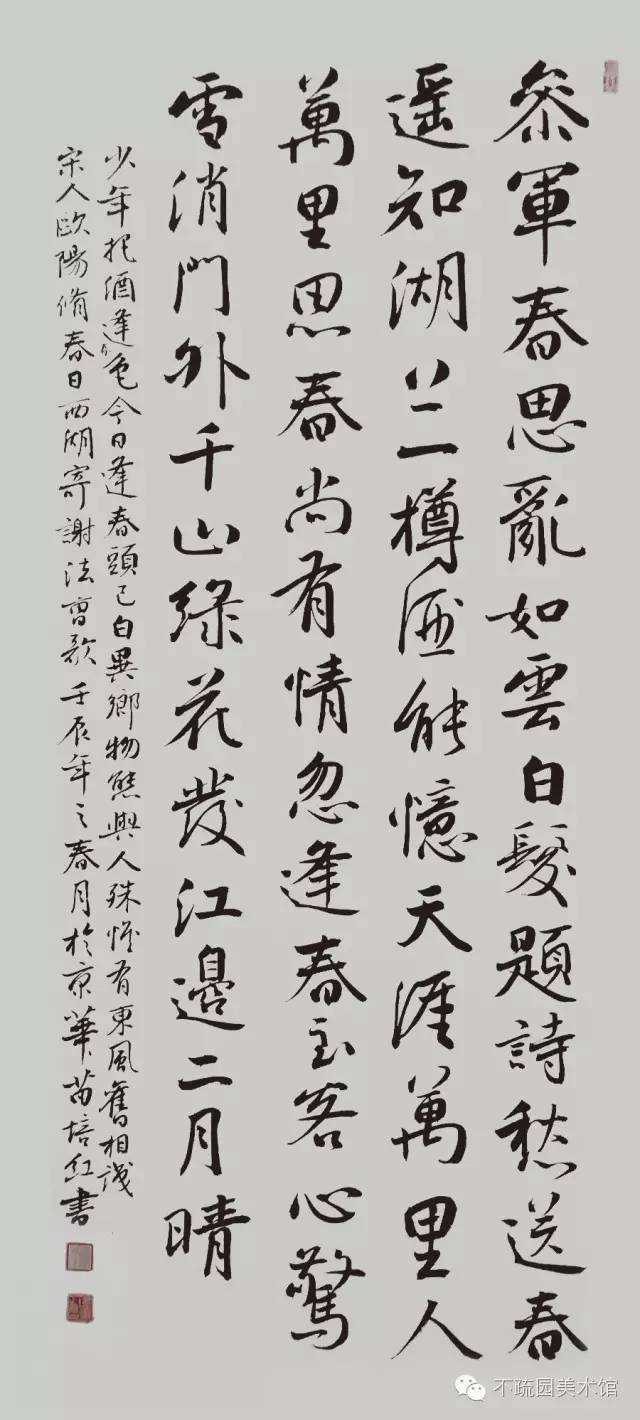 參軍春思亂如雲白髮題詩愁送春
遥知湖上一樽酒能憶天涯萬里人
萬里思春尚有情忽逢春至客心驚
雪消門外千山綠花發江邊二月晴
少年把酒逢色今日逢春頭已白異鄉物態與人殊惟有東風舊相識
宋人歐陽脩春日西湖寄謝法曹歌壬辰年之春月於京華苗培红書
不疏园美术馆